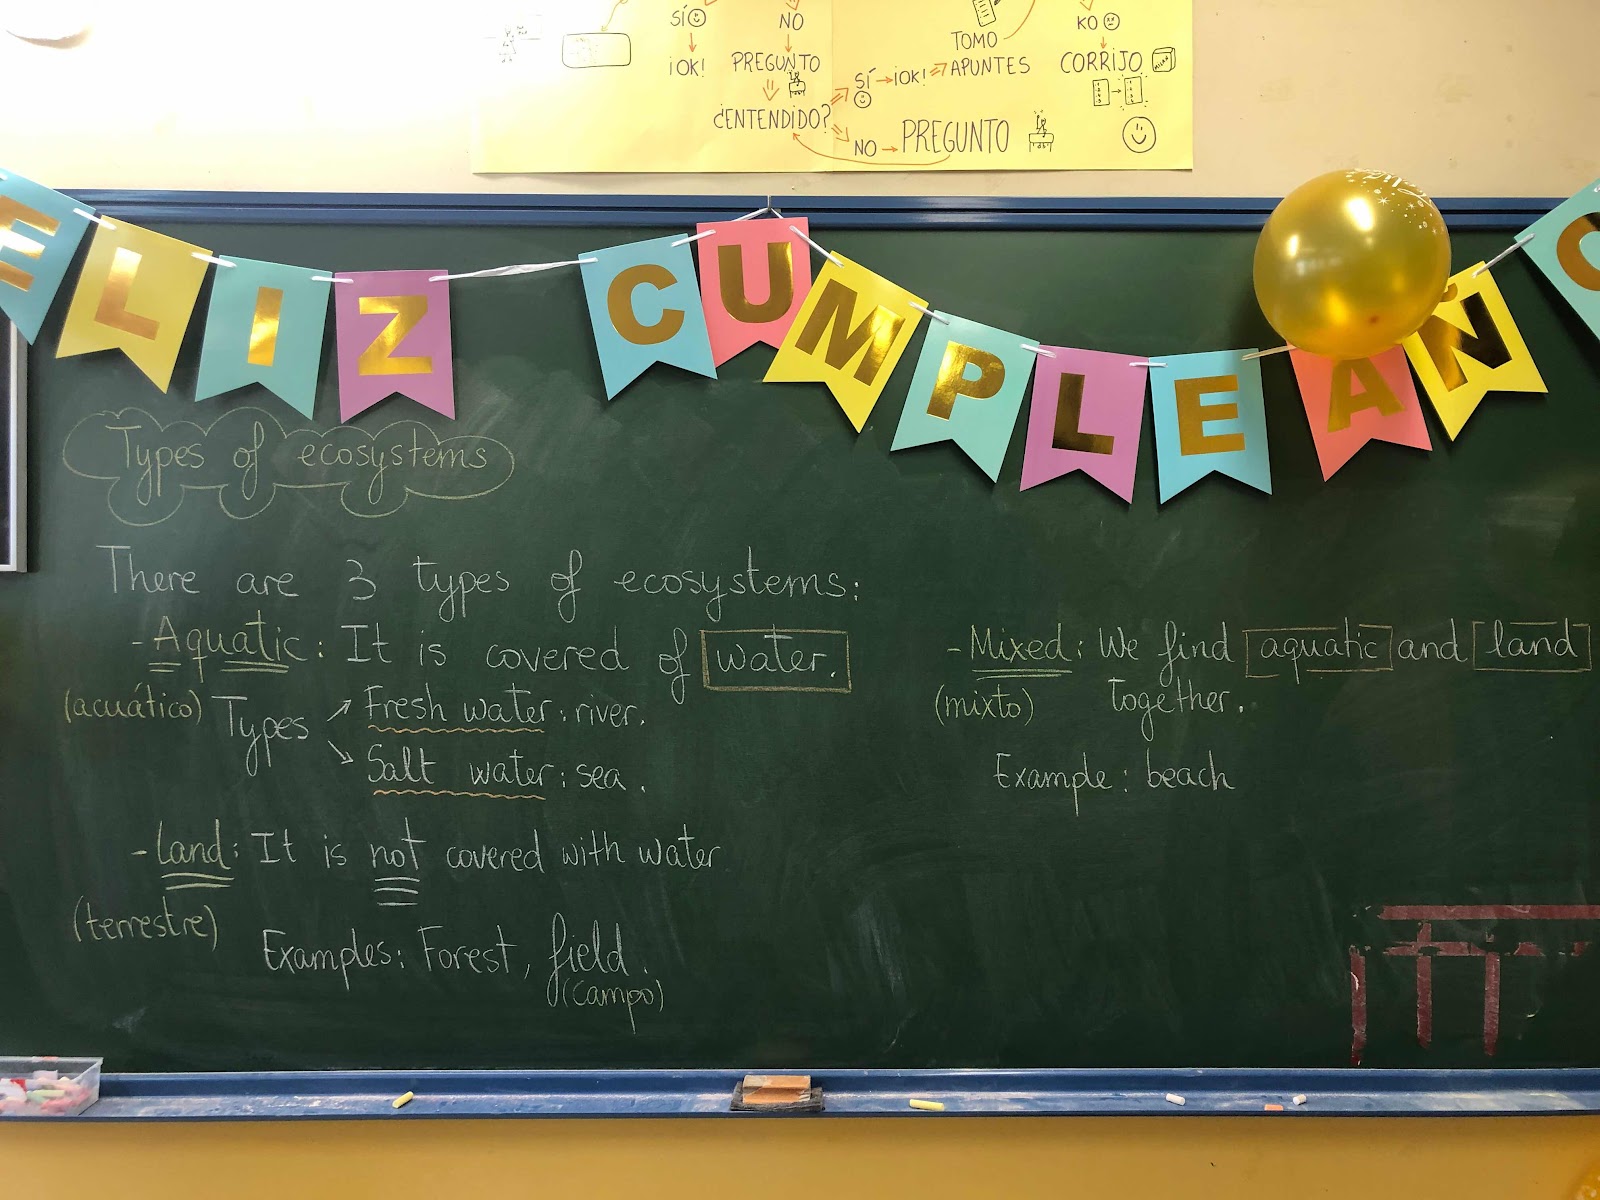 SÍ
NO
¡OK!
PREGUNTO
¿ENTENDIDO?
SÍ
¡OK!
TOMO
APUNTES
NO
PREGUNTO
KO
CORRIJO
ELIZ CUMPLEAÑO
Types of ecosystems
There are 3 types of ecosystems:
- Aquatic: It is covered of water.
(acuático) Types
Fresh water: river.
Salt water: sea.
- Land: It is not covered with water
(terrestre)
Examples: Forest, field.
(campo)
- Mixed: We find aquatic and land
(mixto) together.
Example: beach